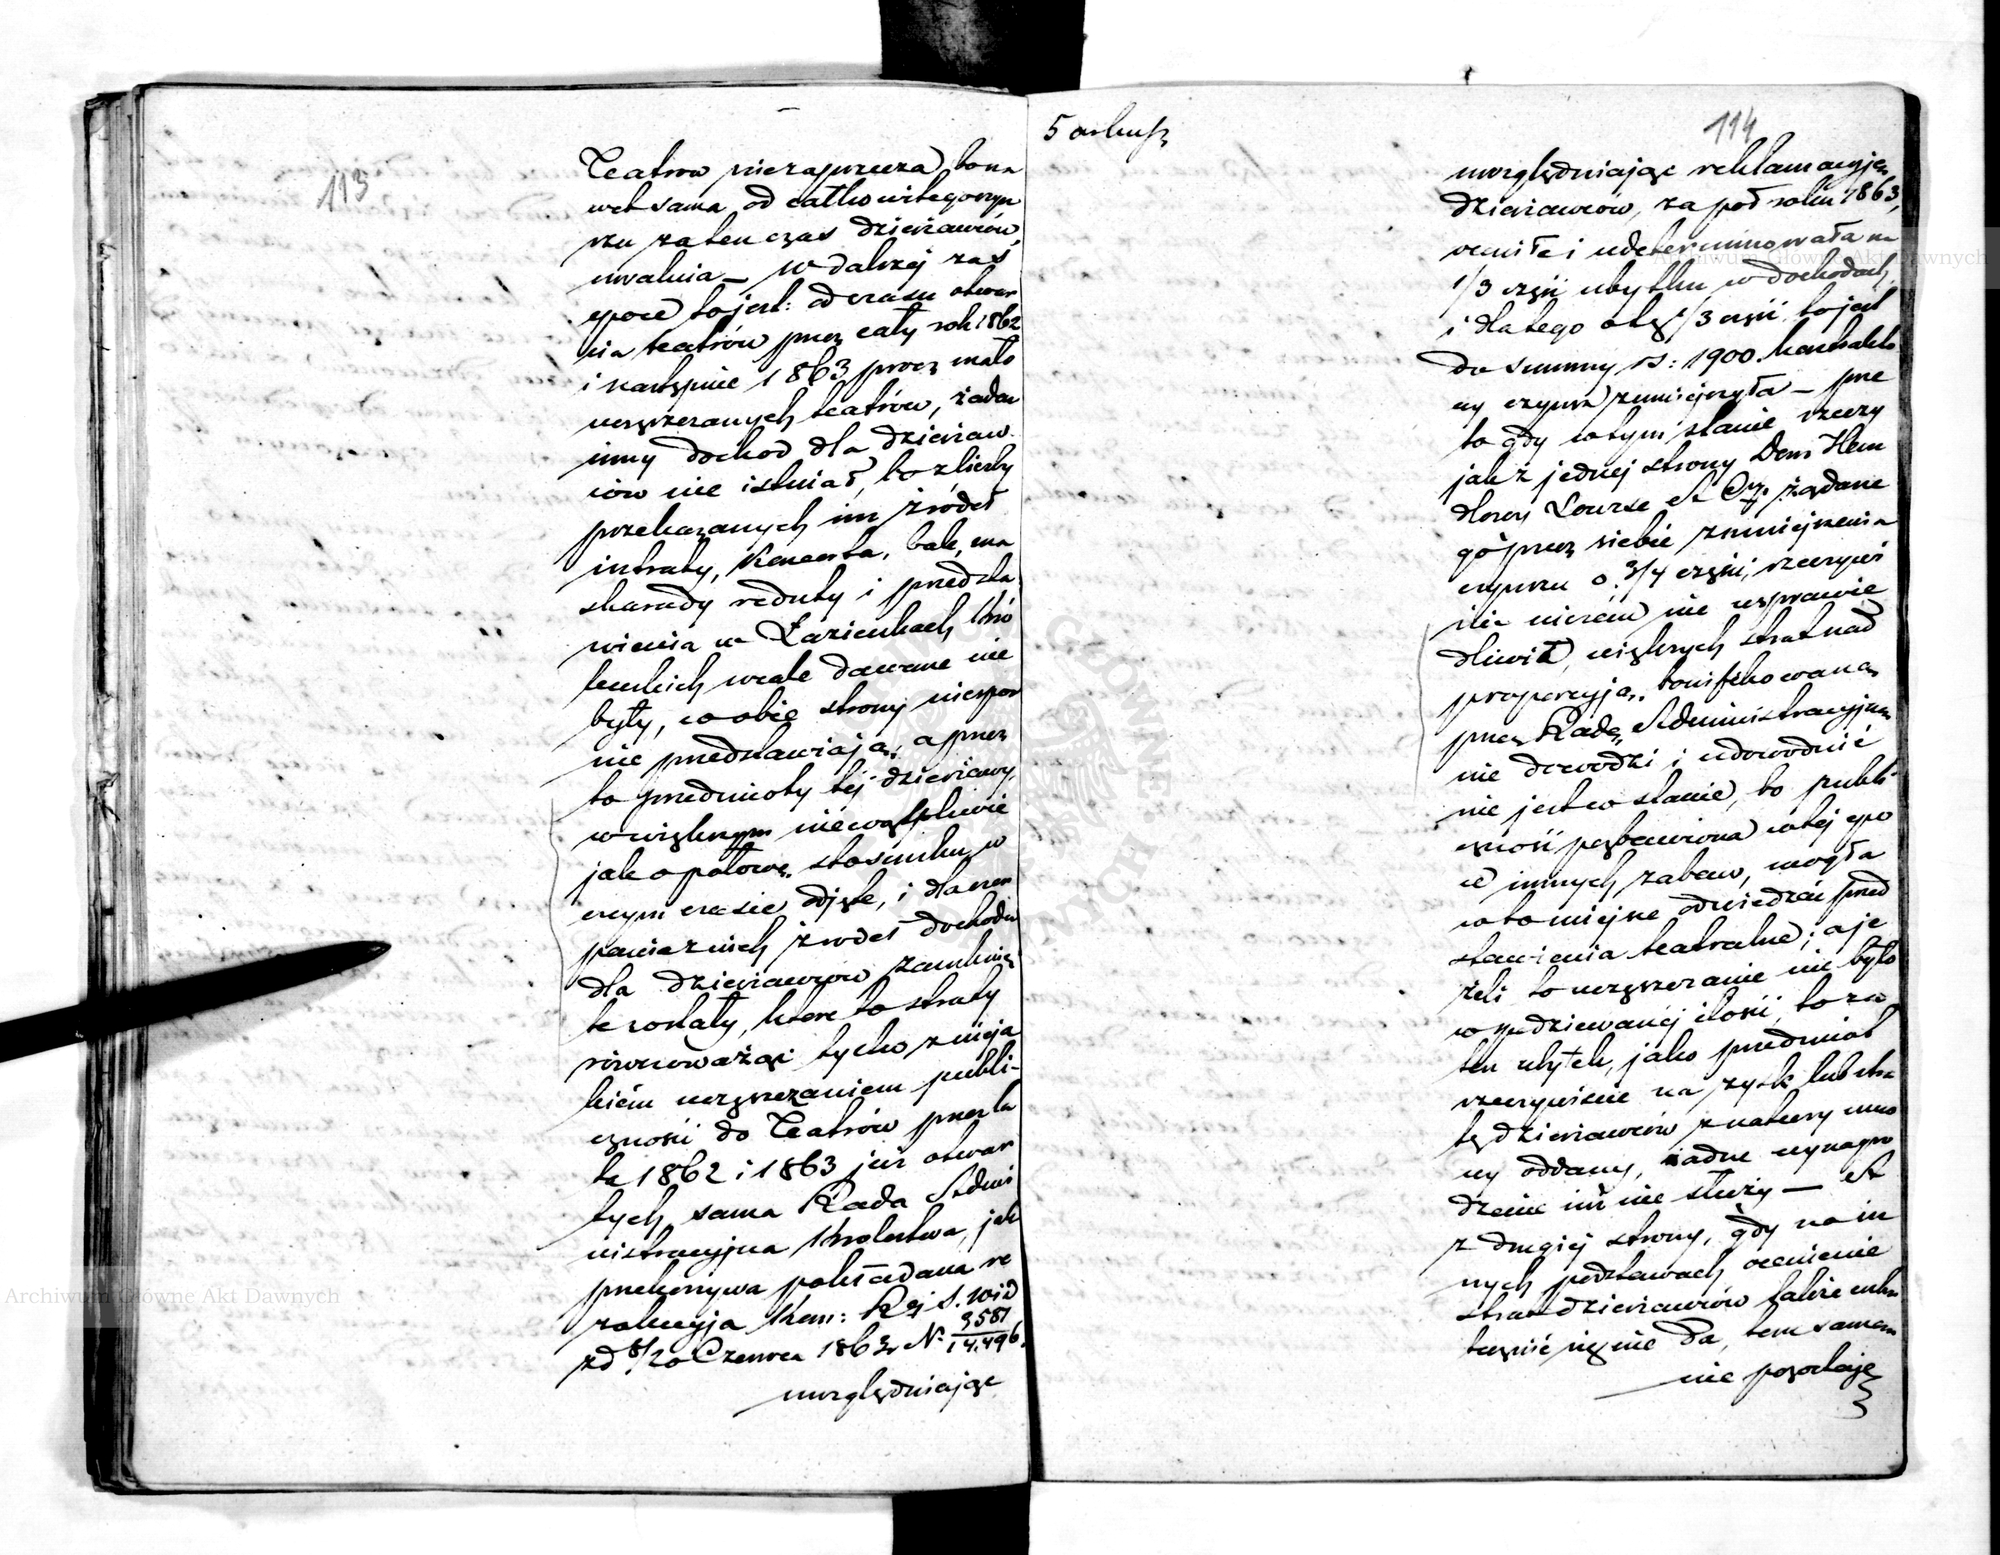 113
Teatrów niezaprzecza, bo na
wet sama od całkowitego czyn
szu za ten czas dzierżawców
uwalnia — w dalszej zaś
epoce to jest: od czasu otwar
cia teatrów przez cały rok 1862
i następnie 1863 prócz mało
uczęszczanych teatrów, żaden
inny dochod dla dzierżaw
ców nie istniał, bo z liczby
przekazanych im źródeł
intraty, Koncerta, bale, ma
skarady reduty i przedsta
wienia w Łazienkach Kró
lewskich wcale dawane nie
były, co obie strony niespor
nie przedstawiają, a przez
to przedmioty tej dzierżawy,
w większym niewątpliwie
jak o połowę stosunku, w
czasie odjęte, i dla
źrodeł dochodu
dla dzierżawców zamknię
te zostały, które to straty
równoważąc tylko z nieja
kiém uczęszczaniem publi-
czności do Teatrów przez la
ta 1862 i 1863 już otwar
tych, sama Rada Admi
nistracyjna Królestwa, jak
przekonywa pokładana re
zolucyja Kom: Rz. S. Wew
z d 8/20 Czerwca 1863 r N. 3581/14,496.
uwzględniając
5 arkusz
114
uwzględniając reklamacyję
dzierżawców, za pół roku 1863,
oceniła i udeterminowała na
1/3 części ubytku w dochodach,
i dlatego o tę 1/3 części to jest
do summy rs: 1900. kontrakto
wy czynsz zmniejszyła — prze
to gdy w tym stanie rzeczy
jak z jednej strony Dom Han
dlowy Lourse et Cp. żądane
go przez siebie zmniejszenia
czynszu o 3/4 części, rzeczywi
ście niczém nie usprawie
dliwił, większych strat nad
proporcyją, bonifikowaną
przez Radę Administracyjną
nie dowodzi i udowodnić
nie jest w stanie, bo publi-
czność pozbawiona w tej epo
ce innych zabaw, mogła
w to miejsce odwiedzać przed
stawienia teatralne, a je
żeli to uczęszczanie nie było
w spodziewanej ilości, to za
ten ubytek, jako przedmiot
rzeczywiście na zysk lub stra
tę dzierżawców z natury umo
wy oddany, żadne wynagro
dzenie im nie służy — A
z drugiej strony, gdy na in
nych podstawach ocenienie
strat dzierżawców także usku
tecznić się nie da, tem samem
nie pozostaje